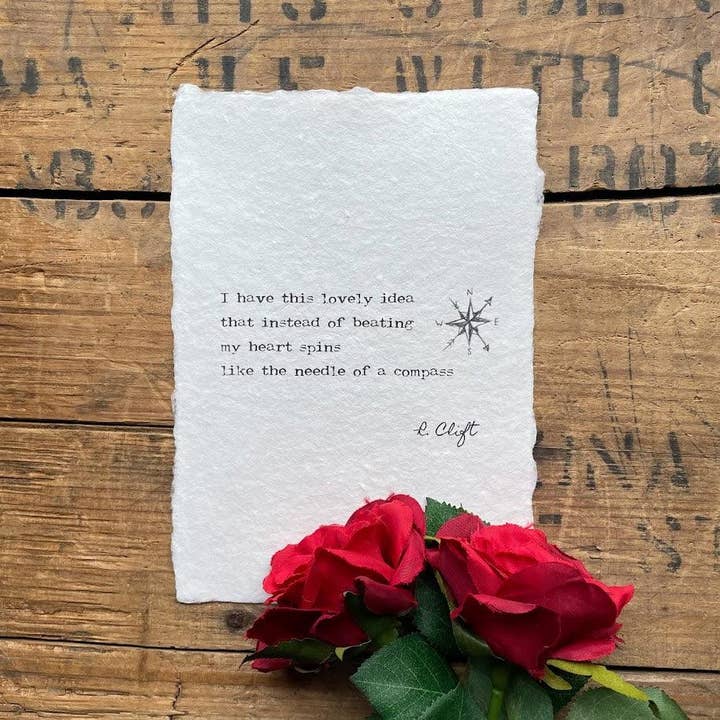 WITH
1307
N
W E
S
I have this lovely idea
that instead of beating
my heart spins
like the needle of a compass
R. Clift
INA